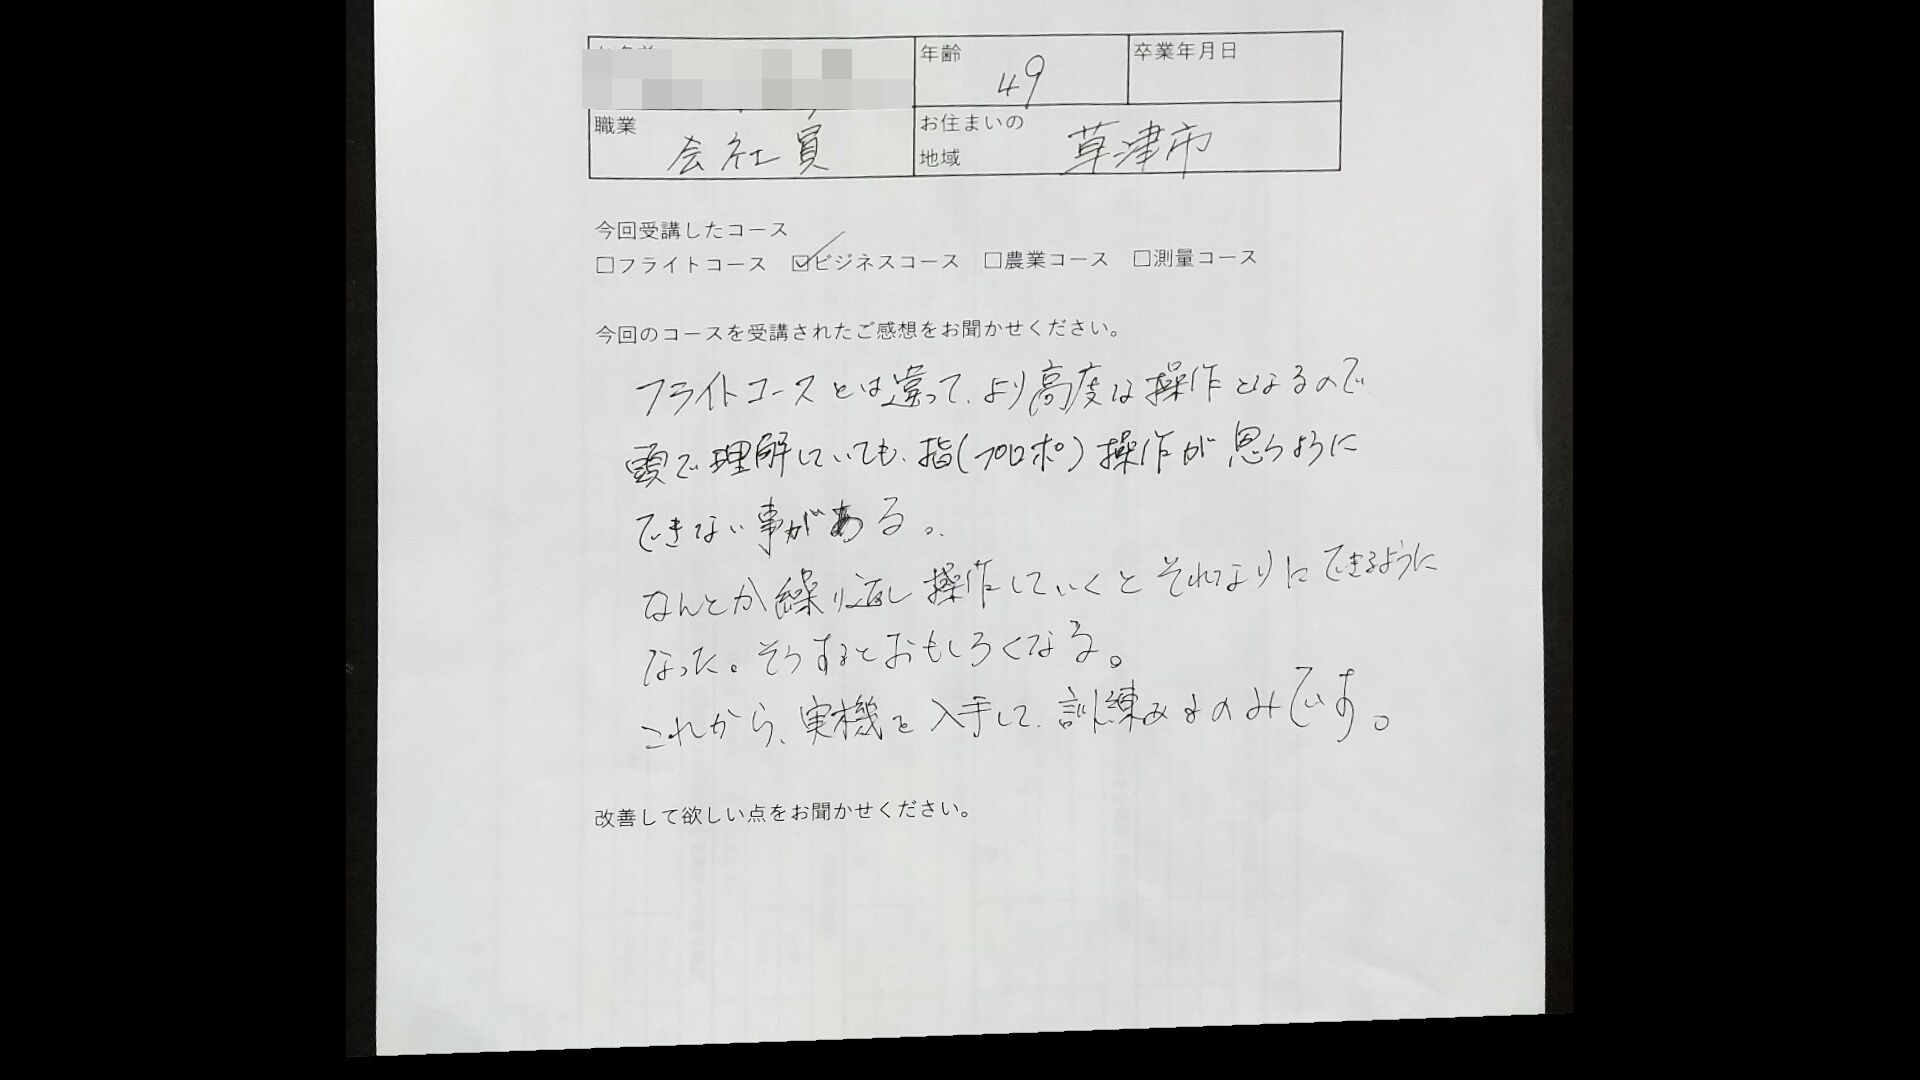 年齢
49
卒業年月日
職業
会社員
お住まいの
地域
草津市
今回受講したコース
□フライトコース ☑ビジネスコース □農業コース □測量コース
今回のコースを受講されたご感想をお聞かせください。
フライトコースとは違って、より高度な操作となるので
頭で理解していても、指(プロポ)操作が思うように
できない事がある。
なんとか繰り返し操作していくとそれなりにできるように
なった。そうするとおもしろくなる。
これから、実機を入手して、訓練あるのみです。
改善して欲しい点をお聞かせください。